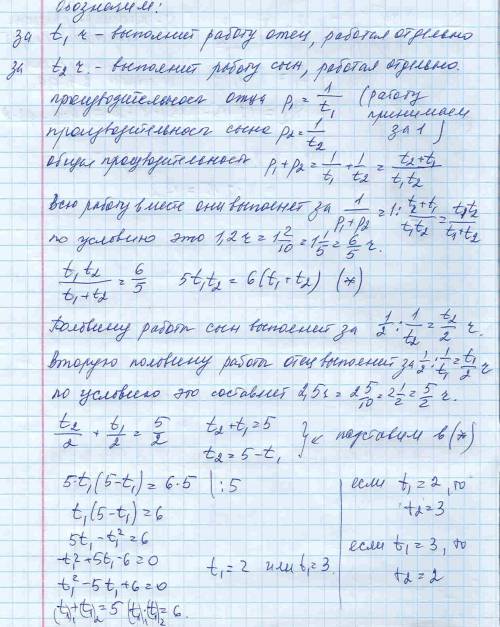 Обозначим:
за t₁ ч – выполнит работу отец, работая отдельно
за t₂ ч. – выполнит работу сын, работая отдельно.
производительность отца p₁ = 1/t₁ (работу принимаем за 1)
производительность сына p₂ = 1/t₂
общая производительность p₁ + p₂ = 1/t₁ + 1/t₂ = (t₂ + t₁)/(t₁t₂)
Всю работу вместе они выполнят за 1/(p₁ + p₂) = 1 : (t₂ + t₁)/(t₁t₂) = t₁t₂/(t₁ + t₂)
по условию это 1,2 ч = 1 2/10 = 1 1/5 = 6/5 ч.
t₁t₂/(t₁ + t₂) = 6/5   5t₁t₂ = 6(t₁ + t₂) (*)
Половину работы сын выполнит за 1/2 : 1/t₂ = t₂/2 ч.
Вторую половину работы отец выполнит за 1/2 : 1/t₁ = t₁/2 ч
по условию это составляет 2,5 ч = 2 5/10 = 2 1/2 = 5/2 ч.
t₂/2 + t₁/2 = 5/2   t₂ + t₁ = 5
t₂ = 5 – t₁ } подставим в (*)
5·t₁(5–t₁) = 6·5 |:5
t₁(5–t₁) = 6
5t₁ – t₁² = 6
–t₁² + 5t₁ – 6 = 0
t₁² – 5t₁ + 6 = 0
(t₁)₁ + (t₁)₂ = 5 (t₁)₁·(t₁)₂ = 6.
t₁ = 2 или t₁ = 3.
если t₁ = 2, то
t₂ = 3
если t₁ = 3, то
t₂ = 2